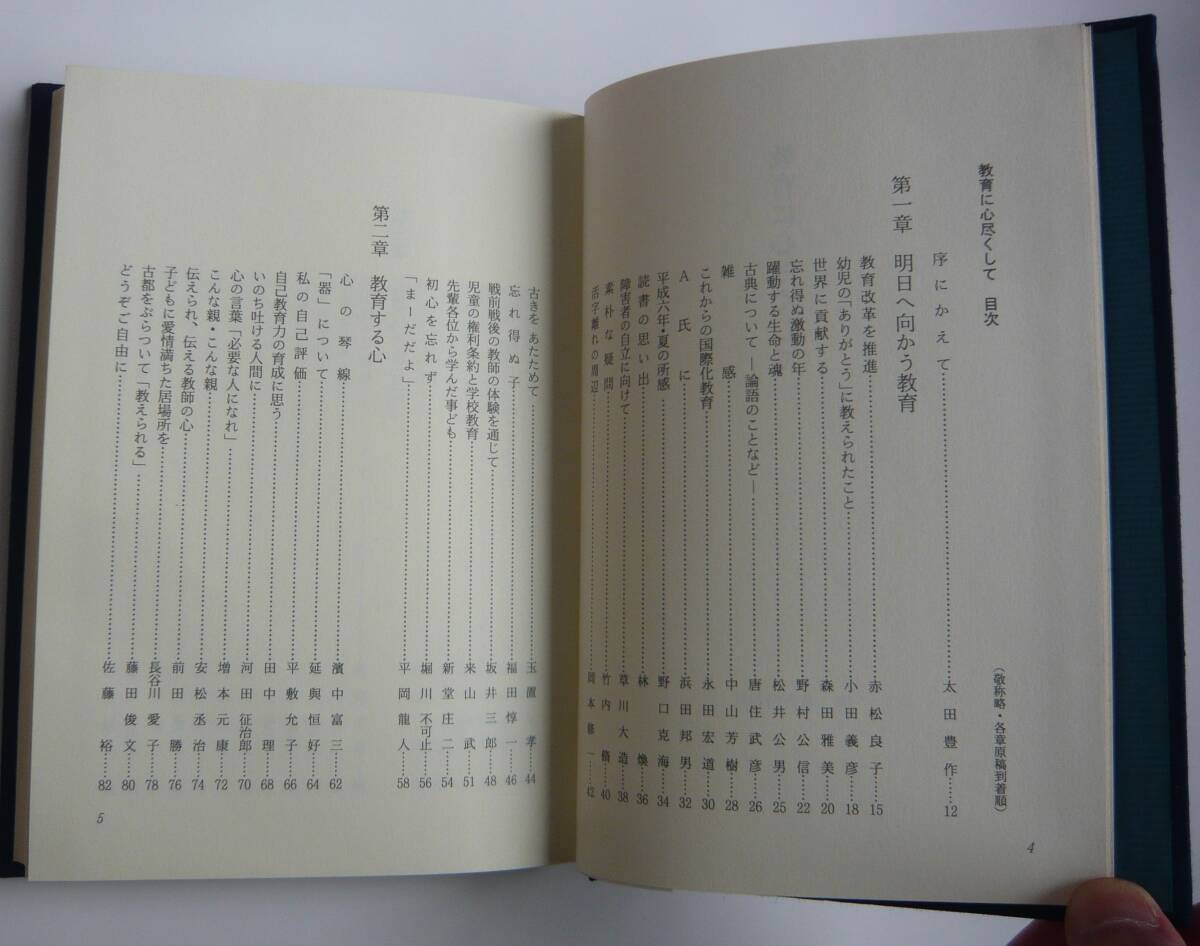 教育に心尽くして　目次
（敬称略・各章原稿到着順）
序にかえて……太田豊作……12
第一章　明日へ向かう教育
教育改革を推進……赤松良子……15
幼児の「ありがとう」に教えられたこと……小田義彦……18
世界に貢献する……森田雅美……20
忘れ得ぬ激動の年……野村公信……22
躍動する生命と魂……松井公男……25
古典について ―論語のことなど―……唐住武彦……26
雑感……中山芳樹……28
これからの国際化教育……永田宏道……30
Ａ氏に……浜田邦男……32
平成六年・夏の所感……野口克海……34
読書の思い出……林　煥……36
障害者の自立に向けて……草川大造……38
素朴な疑問……竹内　脩……40
活字離れの周辺……岡本修一……42
4
古きを あたためて……玉置　孝……44
忘れ得ぬ子……福田惇一……46
戦前戦後の教師の体験を通じて……坂井三郎……48
児童の権利条約と学校教育……来山　武……51
先輩各位から学んだ事ども……新堂庄二……54
初心を忘れず……堀川不可止……56
「まーだだよ」……平岡龍人……58
第二章　教育する心
心の琴線……濱中富三……62
「器」について……延與恒好……64
私の自己評価……平敷允子……66
自己教育力の育成に思う……田中　理……68
いのち吐ける人間に……河田征治郎……70
心の言葉「必要な人になれ」……増本元康……72
こんな親・こんな親……安松丞治……74
伝えられ、伝える教師の心……前田　勝……76
子どもに愛情満ちた居場所を……長谷川愛子……78
古都をぶらついて「教えられる」……藤田俊文……80
どうぞご自由に……佐藤　裕……82
5